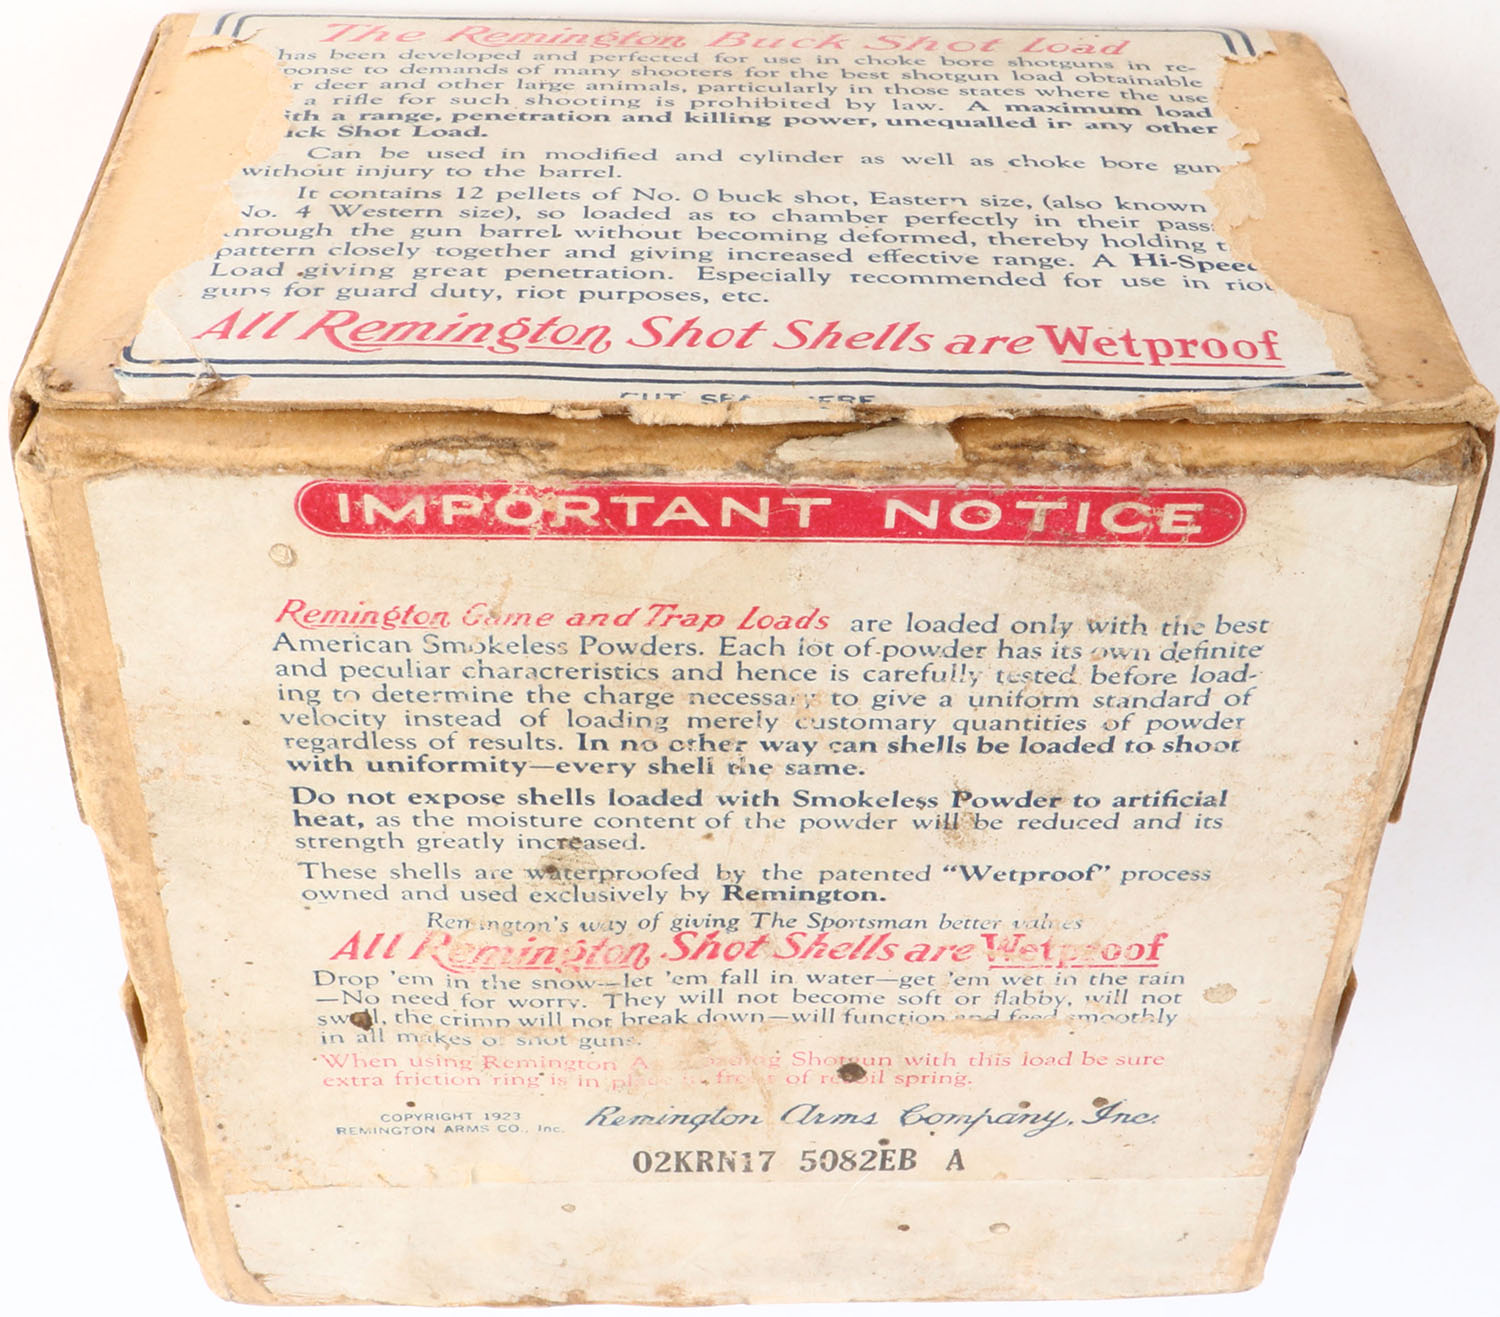 The Remington Buck Shot Load
has been developed and perfected for use in choke bore shotguns in re-
ponse to demands of many shooters for the best shotgun load obtainable
r deer and other large animals, particularly in those states where the use
a rifle for such shooting is prohibited by law. A maximum load
ith a range, penetration and killing power, unequalled in any other
ck Shot Load.
Can be used in modified and cylinder as well as choke bore gun
without injury to the barrel.
It contains 12 pellets of No. 0 buck shot, Eastern size, (also known
No. 4 Western size), so loaded as to chamber perfectly in their pass
through the gun barrel without becoming deformed, thereby holding t
pattern closely together and giving increased effective range. A Hi-Speed
Load giving great penetration. Especially recommended for use in riot
guns for guard duty, riot purposes, etc.
All Remington Shot Shells are Wetproof
CUT SEAL HERE
IMPORTANT NOTICE
Remington Game and Trap Loads are loaded only with the best
American Smokeless Powders. Each lot of powder has its own definite
and peculiar characteristics and hence is carefully tested before load-
ing to determine the charge necessary to give a uniform standard of
velocity instead of loading merely customary quantities of powder
regardless of results. In no other way can shells be loaded to shoot
with uniformity—every shell the same.
Do not expose shells loaded with Smokeless Powder to artificial
heat, as the moisture content of the powder will be reduced and its
strength greatly increased.
These shells are waterproofed by the patented "Wetproof" process
owned and used exclusively by Remington.
Remington's way of giving The Sportsman better values
All Remington Shot Shells are Wetproof
Drop 'em in the snow—let 'em fall in water—get 'em wet in the rain
—No need for worry. They will not become soft or flabby, will not
swell, the crimp will not break down—will function and feed smoothly
in all makes of shot guns.
When using Remington Autoloading Shotgun with this load be sure
extra friction ring is in place in front of recoil spring.
COPYRIGHT 1923
REMINGTON ARMS CO., Inc.
Remington Arms Company, Inc.
02KRN17 5082EB A